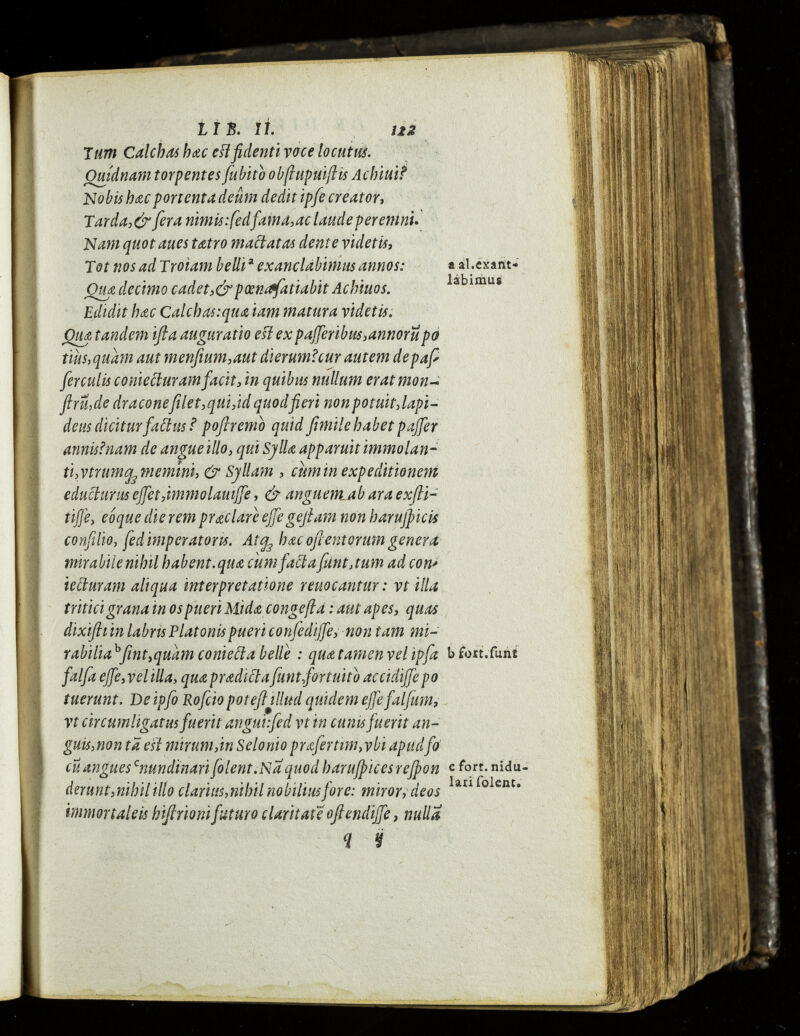 LIB. II. 122
Tum Calchas hæc est fidenti voce locutus.
Quidnam torpentes subitò obstupuistis Achiui?
Nobis hæc portenta deûm dedit ipse creator,
Tarda,& sera nimis:sed fama,ac laude peremni.
Nam quot aues tætro mactatas dente videtis,
Tot nos ad Troiam belli ᵃ exanclabimus annos:
a al.exant-
labimus
Quæ decimo cadet,& pœna satiabit Achiuos.
Edidit hæc Calchas:quæ iam matura videtis.
Quæ tandem ista auguratio est ex passeribus,annorū po
tiùs,quàm aut mensium,aut dierum?cur autem de pas-
serculis coniecturam facit, in quibus nullum erat mon-
strū,de dracone silet,qui,id quod fieri non potuit,lapi-
deus dicitur factus? postremò quid simile habet passer
annis?nam de angue illo, qui Syllæ apparuit immolan-
ti,vtrumq; memini, & Syllam , cùm in expeditionem
educturus esset,immolauisse, & anguem ab ara exsti-
tisse, eóque die rem præclarè esse gestam non haruspicis
consilio, sed imperatoris. Atq; hæc ostentorum genera
mirabile nihil habent.quæ cùm facta sunt,tum ad con-
iecturam aliqua interpretatione reuocantur: vt illa
tritici grana in os pueri Midæ congesta : aut apes, quas
dixisti in labris Platonis pueri consedisse, non tam mi-
rabilia ᵇsint,quàm coniecta bellè : quæ tamen vel ipsa
b fort.sunt
falsa esse,vel illa, quæ prædicta sunt,fortuitò accidisse po
tuerunt. De ipso Roscio potest illud quidem esse falsum,
vt circumligatus fuerit angui:sed vt in cunis fuerit an-
guis,non tā est mirum,in Selonio præsertim,vbi apud fo
cū angues ᶜnundinari solent.Nā quod haruspices respon
c fort. nidu-
lari solent.
derunt,nihil illo clarius,nihil nobilius fore: miror, deos
immortaleis histrioni futuro claritatē ostendisse, nullā
q ij